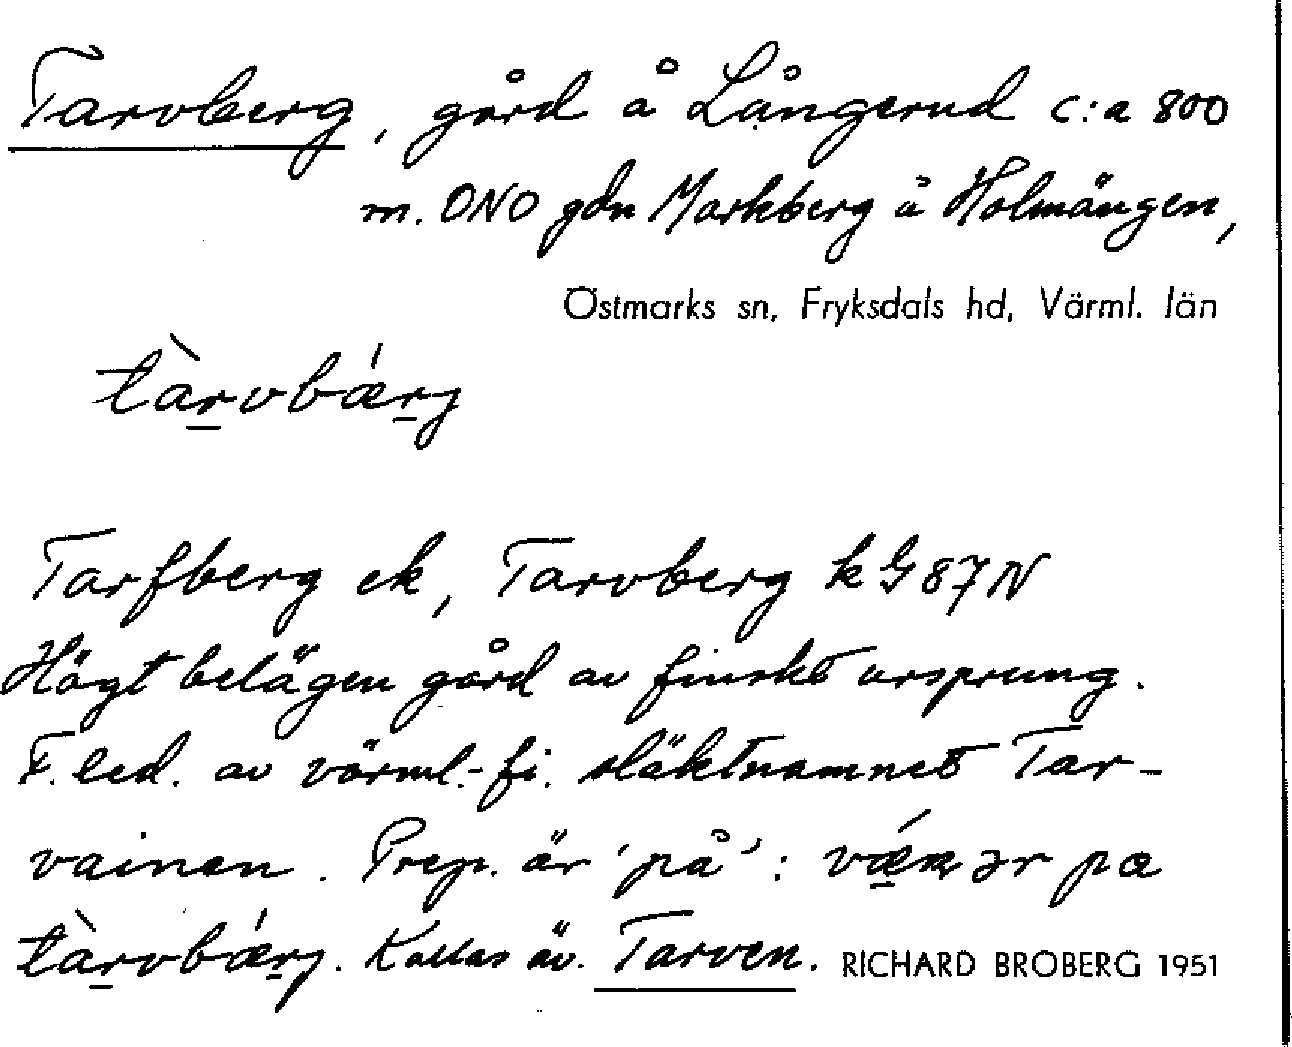 Tarvberg, gård å Långerud c:a 800
m. ONO gdn Markberg å Holmängen,
Östmarks sn, Fryksdals hd, Värml. län
tàrvbǽrj
Tarfberg ek, Tarvberg k G 87 N
Högt belägen gård av finskt ursprung.
F. led. av värml.-fi. släktnamnet Tar-
vainen. Prep. är 'på': ər pa
tàrvbǽrj. Kallas äv. Tarven. RICHARD BROBERG 1951